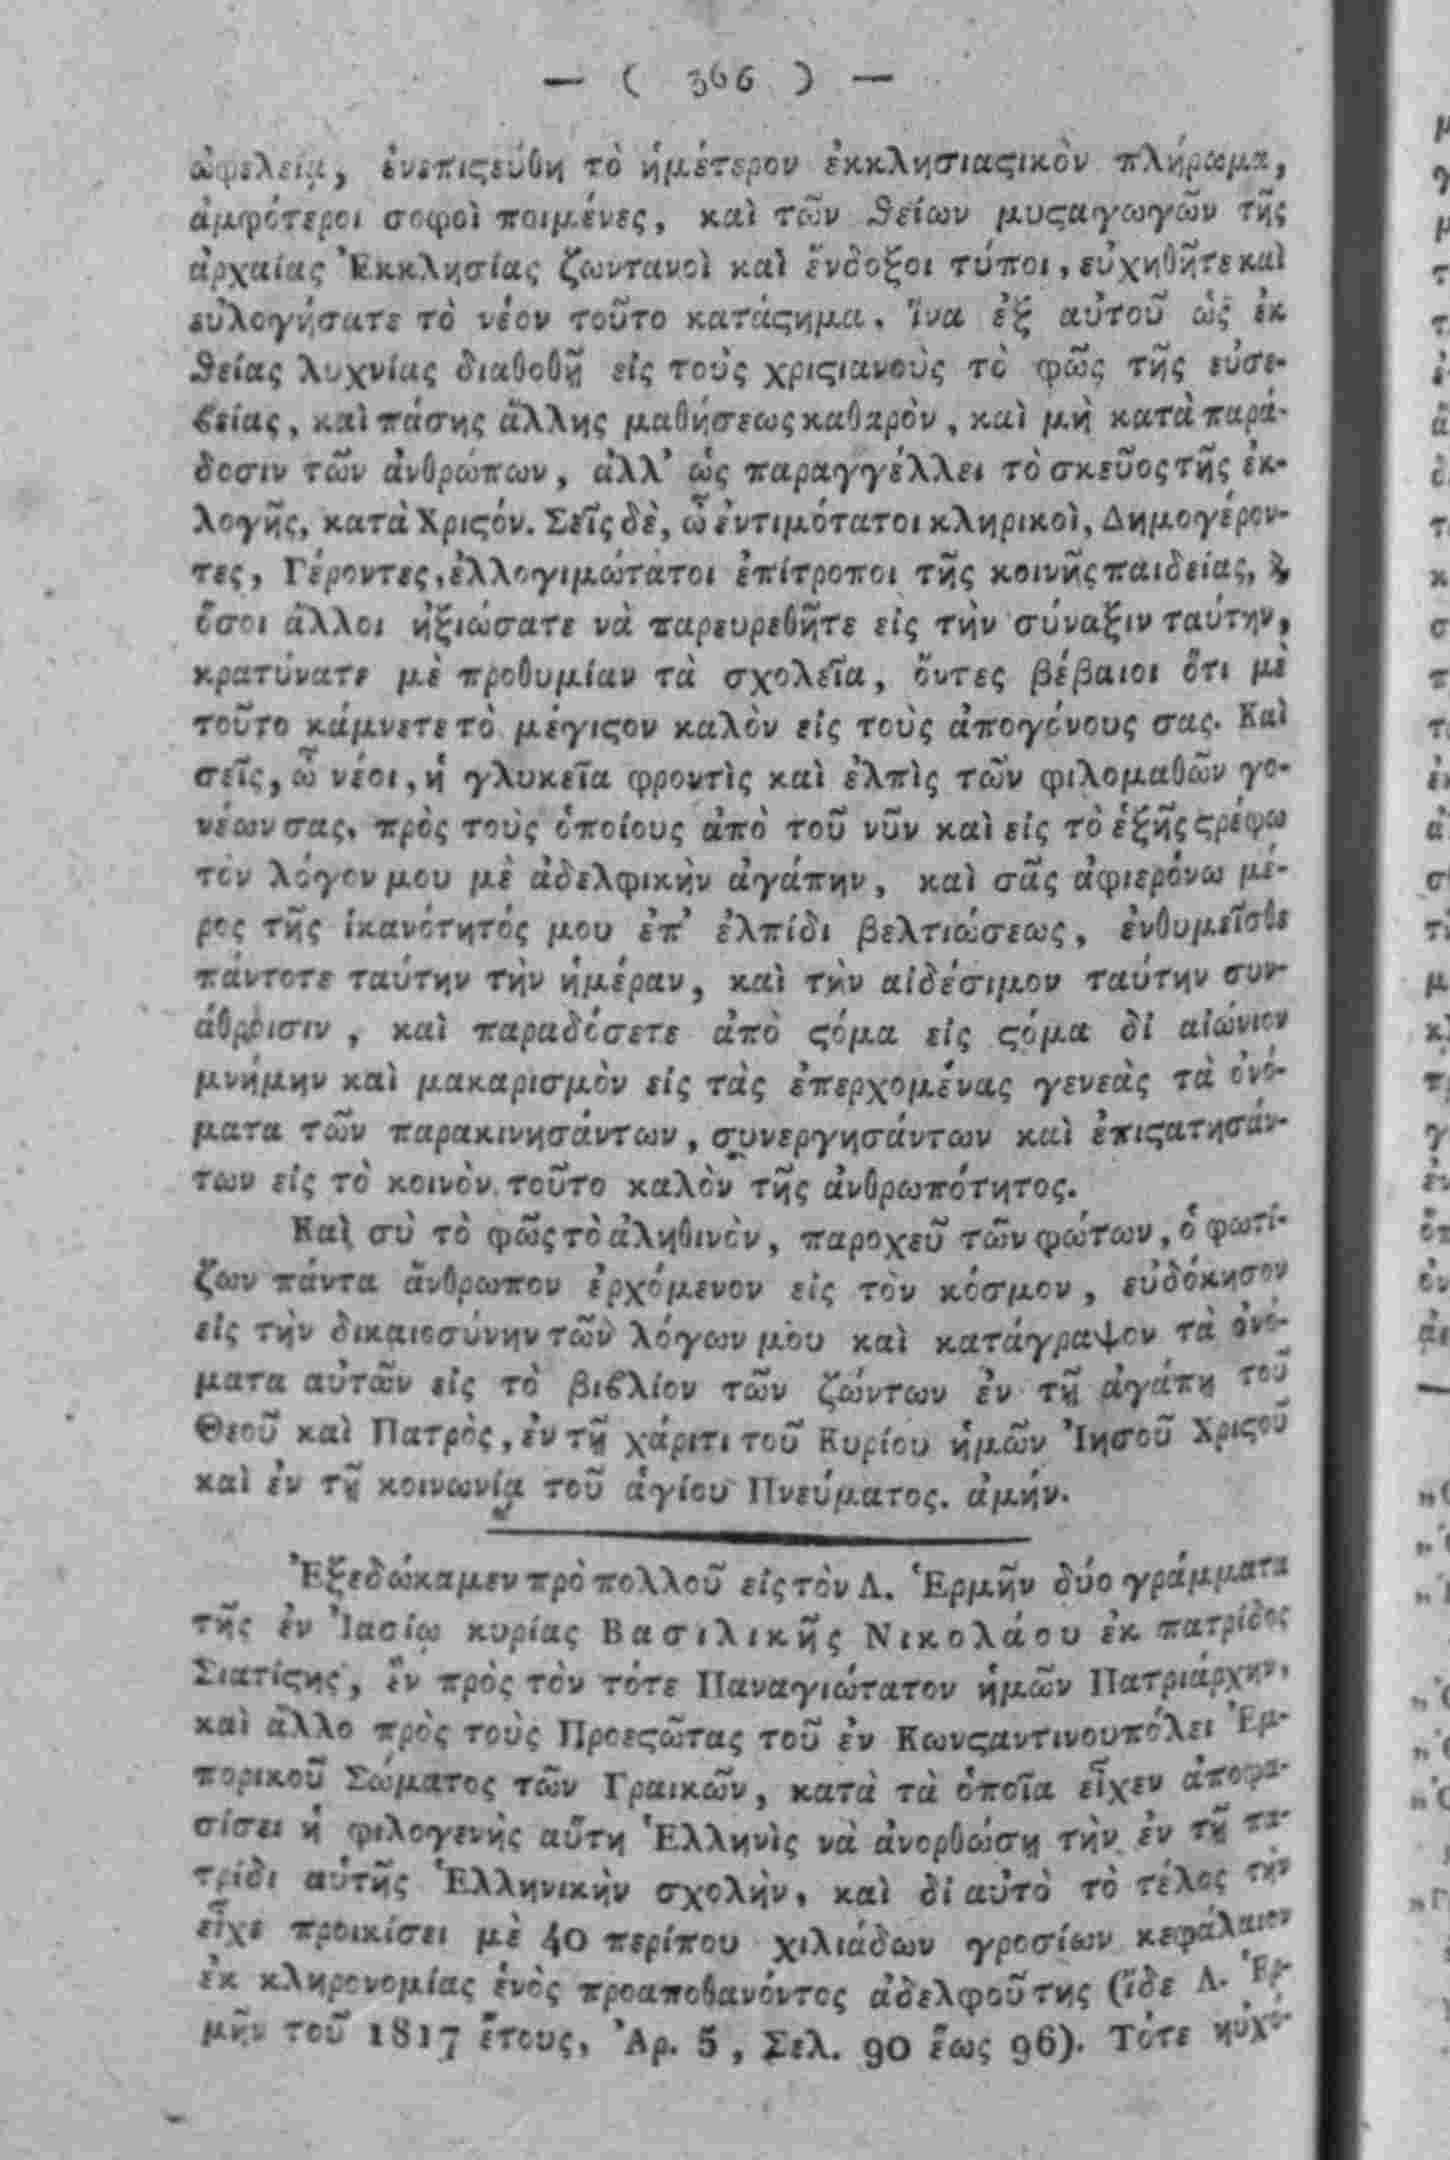 — ( 366 ) —
ὠφελείᾳ, ἐνεπιϛεύθη τὸ ἡμέτερον ἐκκλησιαϛικὸν πλήρωμα,
ἀμφότεροι σοφοὶ ποιμένες, καὶ τῶν θείων μυϛαγωγῶν τῆς
ἀρχαίας Ἐκκλησίας ζωντανοὶ καὶ ἔνδοξοι τύποι, εὐχηθῆτε καὶ
εὐλογήσατε τὸ νέον τοῦτο κατάϛημα. ἵνα ἐξ αὐτοῦ ὡς ἐκ
θείας λυχνίας διαθοθῇ εἰς τοὺς χριϛιανοὺς τὸ φῶς τῆς εὐσε-
ϐείας, καὶ πάσης ἄλλης μαθήσεως καθαρὸν, καὶ μὴ κατὰ παρά-
δοσιν τῶν ἀνθρώπων, ἀλλ' ὡς παραγγέλλει τὸ σκεῦος τῆς ἐκ-
λογῆς, κατὰ Χριϛόν. Σεῖς δὲ, ὦ ἐντιμότατοι κληρικοὶ, Δημογέρον-
τες, Γέροντες, ἐλλογιμώτατοι ἐπίτροποι τῆς κοινῆς παιδείας, ϗ
ὅσοι ἄλλοι ἠξιώσατε νὰ παρευρεθῆτε εἰς τὴν σύναξιν ταύτην,
κρατύνατε μὲ προθυμίαν τὰ σχολεῖα, ὄντες βέβαιοι ὅτι μὲ
τοῦτο κάμνετε τὸ μέγιϛον καλὸν εἰς τοὺς ἀπογόνους σας. Καὶ
σεῖς, ὦ νέοι, ἡ γλυκεῖα φροντὶς καὶ ἐλπὶς τῶν φιλομαθῶν γο-
νέων σας, πρὸς τοὺς ὁποίους ἀπὸ τοῦ νῦν καὶ εἰς τὸ ἑξῆς ϛρέφω
τὸν λόγον μου μὲ ἀδελφικὴν ἀγάπην, καὶ σᾶς ἀφιερόνω μέ-
ρος τῆς ἱκανότητός μου ἐπ' ἐλπίδι βελτιώσεως, ἐνθυμεῖσθε
πάντοτε ταύτην τὴν ἡμέραν, καὶ τὴν αἰδέσιμον ταύτην συν-
άθροισιν, καὶ παραδόσετε ἀπὸ ϛόμα εἰς ϛόμα δἰ αἰώνιον
μνήμην καὶ μακαρισμὸν εἰς τὰς ἐπερχομένας γενεὰς τὰ ὀνό-
ματα τῶν παρακινησάντων, συνεργησάντων καὶ ἐπιϛατησάν-
των εἰς τὸ κοινὸν τοῦτο καλὸν τῆς ἀνθρωπότητος.
Καὶ σὺ τὸ φῶς τὸ ἀληθινὸν, παροχεῦ τῶν φώτων, ὁ φωτί-
ζων πάντα ἄνθρωπον ἐρχόμενον εἰς τὸν κόσμον, εὐδόκησον
εἰς τὴν δικαιοσύνην τῶν λόγων μου καὶ κατάγραψον τὰ ὀνό-
ματα αὐτῶν εἰς τὸ βιϐλίον τῶν ζώντων ἐν τῇ ἀγάπῃ τοῦ
Θεοῦ καὶ Πατρὸς, ἐν τῇ χάριτι τοῦ Κυρίου ἡμῶν Ἰησοῦ Χριϛοῦ
καὶ ἐν τῇ κοινωνίᾳ τοῦ ἁγίου Πνεύματος. ἀμήν.
Ἐξεδώκαμεν πρὸ πολλοῦ εἰς τὸν Λ. Ἑρμῆν δύο γράμματα
τῆς ἐν Ἰασίῳ κυρίας Βασιλικῆς Νικολάου ἐκ πατρίδος
Σιατίϛης, ἓν πρὸς τὸν τότε Παναγιώτατον ἡμῶν Πατριάρχην,
καὶ ἄλλο πρὸς τοὺς Προεϛῶτας τοῦ ἐν Κωνϛαντινουπόλει Ἐμ-
πορικοῦ Σώματος τῶν Γραικῶν, κατὰ τὰ ὁποῖα εἶχεν ἀποφα-
σίσει ἡ φιλογενὴς αὕτη Ἑλληνὶς νὰ ἀνορθώσῃ τὴν ἐν τῇ πα-
τρίδι αὑτῆς Ἑλληνικὴν σχολὴν, καὶ δἰ αὐτὸ τὸ τέλος τὴν
εἶχε προικίσει μὲ 40 περίπου χιλιάδων γροσίων κεφάλαιον
ἐκ κληρονομίας ἑνὸς προαποθανόντος ἀδελφοῦ της (ἴδε Λ. Ἑρ-
μῆν τοῦ 1817 ἔτους, Ἀρ. 5, Σελ. 90 ἕως 96). Τότε ηὐχό-